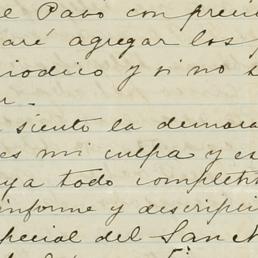 e Pavo con preci
aré agregar los
iodico y si no s
r.
siento la demora
es mi culpa y es
ya todo completo
informe y descripci
pecial del San